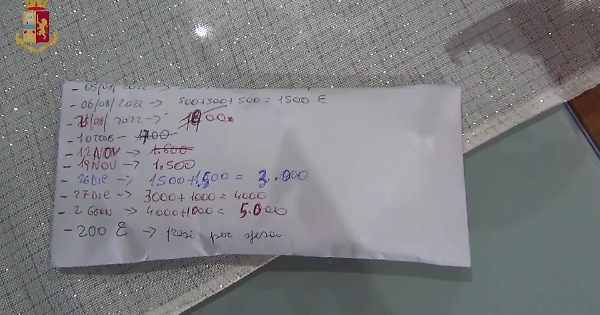 - 05/08/2022 →
- 06/08/2022 → 500+500+500 = 1500 E
/08/2022 →
- 10 1700
- 12 NOV → 1.600
- 19 NOV → 1.500
- 26 DIC → 1500+1.500 = 3.000
- 27 DIC → 3000+1000 = 4000
- 2 GENN → 4000+1000 = 5.000
- 200 E → presi per spesa